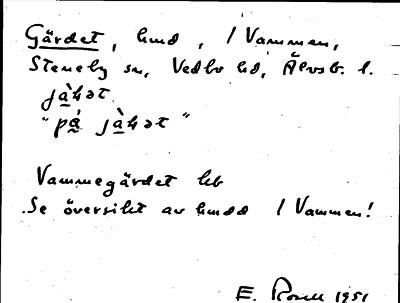 Gärdet, hmd, 1 Vammen,
Steneby sn, Vedbo hd, Älvsb. l.
jàḷət
"på̀ jàḷət"
Vammegärdet hb
Se översikt av hmdd 1 Vammen!
E. Rosell 1951